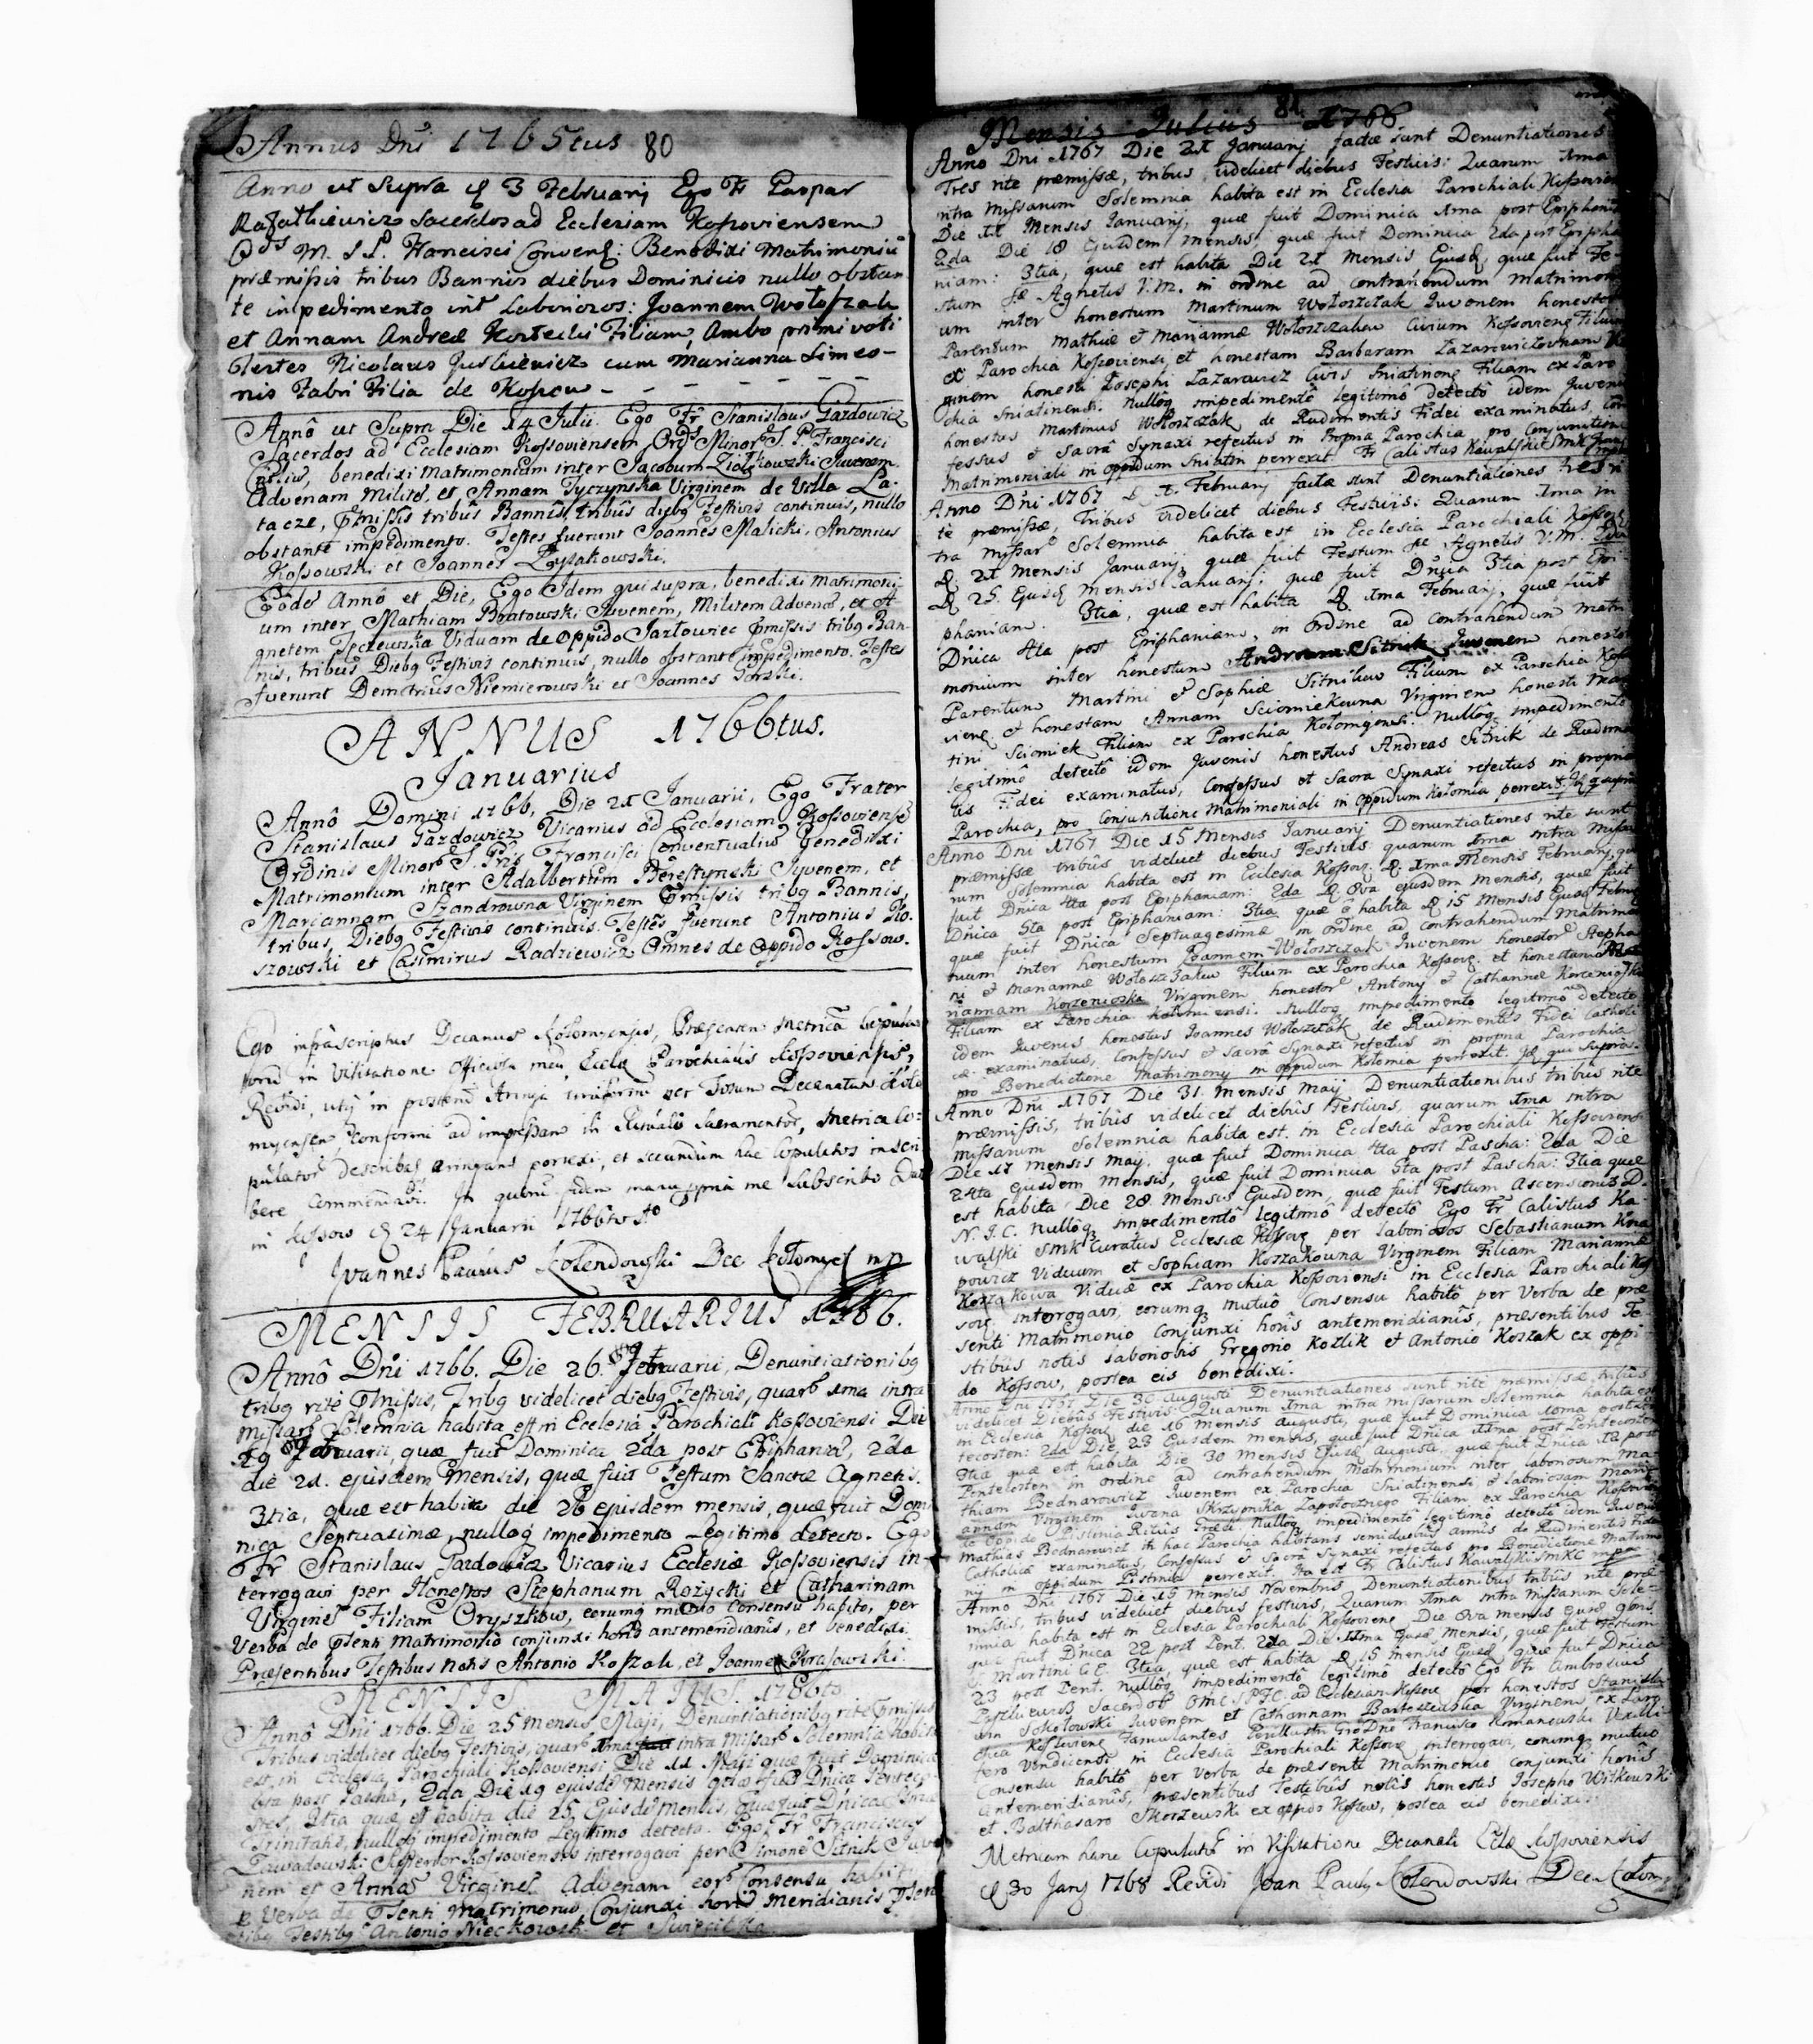 Annus Dni 1765tus 80
Anno ut supra d 3 Februarij Ego Fr Gaspar
Rafalkiewicz Sacerdos ad Ecclesiam Kossoviensem
M. S P. Francisci Convent: Benedixi Matrimoniū
præmissis tribus Bannis diebus Dominicis nullo obstan
te impedimento int Laboriosos: Joannem Wołoszak
et Annam Andreæ Filiam, Ambo primi voti
Testes Nicolaus cum Marianna Simeo-
nis Fabri Filia de Kossow - - - - - -
Annô ut Supra Die 14 Julii. Ego Fr Stanislaus Gazdowicz
Sacerdos ad Ecclesiam Kossoviensem Ordis Minor S. P. Francisci
benedixi Matrimonium inter Jacobum Ziołkowski Juvenem
Advenam Milite, et Annam Tyczynska Virginem de Villa La-
tacze, pmissis tribus Bannis tribus diebg Festivis continuis, nullo
obstante impedimento. Testes fuerunt Joannes Malicki, Antonius
Kossowski et Joannes Łysakowski.
Eode Annô et Die, Ego Idem qui supra, benedixi Matrimoni-
um inter Mathiam Bratowski Juvenem, Militem Advenā, et A-
gnetem Viduam de Oppido Jazłowiec pmissis tribg Ban-
nis, tribus Diebg Festivis continuis, nullo obstante Impedimento. Testes
fuerunt Demetrius Niemierowski et Joannes Gorzki.
ANNUS 1766tus.
Januarius
Annô Domini 1766, Die 21 Januarii, Ego Frater
Stanislaus Gazdowicz Vicarius ad Ecclesiam Kossoviensē
Ordinis Minor S. Pris Francisci Conventualiū benedixi
Matrimonium inter Adalbertum Berestynski Juvenem, et
Mariannam Szandrowna Virginem pmissis tribg Bannis,
tribus Diebg Festivis continuis. Testes fuerunt Antonius Ko-
szowski et Casimirus Radziewicz Omnes de Oppido Kossow.
Ego infrascriptus Decanus Kolomyensis, Præsentem Metricā Copula
torū in Visitatione Officiosa mea Eccl Parochialis Kossoviensis,
Revidi, utq in posterū uniformi per totum Decanatum Kolo
myensem conformi ad impressam in Rituali Sacramentor, Metrica Co-
pulator describat porrexi, et secundum hac Copulatos inscri
bere Commendavi. In quorū fidem manu ppria me subscribo Dat
in Kossow d 24 Januarii 1766to Ao
Joannes Paulus Kolendowski Dec Kołomyen mp
MENSIS FEBRUARIUS 1766.
Annô Dni 1766. Die 26. Februarii, Denuntiationibg
tribg rite pmissis, Tribg videlicet diebg Festivis, quarū 1ma intra
Missarū Solemnia habita est in Ecclesia Parochiali Kossoviensi Die
19 Februarii, quæ fuit Dominica 2da post Epiphania, 2da
die 21. ejusdem Mensis, quæ fuit Festum Sanctæ Agnetis.
3tia, quæ est habita die 26 ejusdem mensis, quæ fuit Domi
nica Septuasimæ, nulloq impedimento Legitimo detecto. Ego
Fr Stanislaus Gazdowicz Vicarius Ecclesiæ Kossoviensis in-
terrogavi per Honestos Stephanum Rożycki et Catharinam
Virginē Filiam Oryszkow, eorumq mutuo consensu habito, per
Verba de psenti Matrimonio conjunxi horis antemeridianis, et benedixi.
Præsentibus Testibus Notis Antonio Koszak, et Joanne Krasowski.
MENSIS MAIUS. 1766to
Annô Dni 1766. Die 25 Mensis Maji, Denuntiationibg rite pmissis
Tribus videlicet diebg Festivis, quarū 1ma intra Missarū Solemnia habita
est, in Ecclesia Parochiali Kossoviensi Die 11 Maji quæ fuit Dominica
6ta post Pascha, 2da Die 19 ejusdē Mensis quæ fuit Dnica Penteco
stes, 3tia quæ est habita die 25, Ejusdē Mensis, quæ fuit Dnica Smæ
Trinitatis, nulloq impedimento Legitimo detecto. Ego Fr Franciscus
Zawadowski Kossoviensis interrogavi per Simonē Sitnik Juve
nem et Annā Virginē Advenam eorū Consensu habito
p Verba de psenti Matrimonio Conjunxi horis meridianis psen
tibg Testibg Antonio Nieckowski et
Mensis Julius 81 1766
Anno Dni 1767 Die 21 Januarij factæ sunt Denuntiationes
Tres rite præmissæ, tribus videlicet diebus Festivis: Quarum 1ma
intra Missarum Solemnia habita est in Ecclesia Parochiali Kossovien
Die 11 Mensis Januarij, quæ fuit Dominica 1ma post Epiphania
2da Die 18 Ejusdem mensis, quæ fuit Dominica 2da post Epipha
niam: 3tia, quæ est habita Die 21 mensis Ejusd, quæ fuit Fe-
stum Sæ Agnetis V.M. in ordine ad contrahendum Matrimoni
um inter honestum Martinum Wołoszczak Juvenem honestor
Parentum Mathiæ et Mariannæ Wołoszczakow Civium Kossoviens Filium
ex Parochia Kossoviensi, et honestam Barbaram Lazarowiczownam Vir
ginem honesti Josephi Lazarowicz Civis Sniatinens Filiam ex Paro
chia Sniatinensi. Nulloq impedimentô legitimô detectô idem Juvenis
honestus Martinus Wołoszczak de Rudimentis Fidei examinatus, Con
fessus et Sacrâ Synaxi refectus in propria Parochia pro Conjunctione
Matrimoniali in oppidum Sniatin perrexit. Fr Calistus Kawalski
Anno Dni 1767 d 1. Februarij factæ sunt Denuntiationes tres ri
te præmissæ, Tribus videlicet diebus Festivis: Quarum 1ma in
tra Missarū Solemnia habita est in Ecclesia Parochiali Kossov
d. 21 Mensis Januarij, quæ fuit Festum Sæ Agnetis V.M. 2da
d 25. Ejusd mensis Januarij, quæ fuit Dnica 3tia post Epi-
phaniam. 3tia, quæ est habita d 1ma Februarij, quæ fuit
Dnica 4ta post Epiphaniam, in ordine ad contrahendum Matri
monium inter honestum Andream Sitnik Juvenem honestor
Parentum Martini et Sophiæ Sitnikow Filium ex Parochia Kosso
viens et honestam Annam Sciomiekowna Virginem honesti Mar
tini Sciomiek Filiam ex Parochia Kołomyensi. Nulloq impedimento
legitimô detectô idem Juvenis honestus Andreas Sitnik de Rudimen
tis Fidei examinatus, Confessus et Sacra Synaxi refectus in propria
Parochia, pro Conjunctione Matrimoniali in oppidum Kolomia perrexit. Id q supra
Anno Dni 1767 Die 15 Mensis Januarij Denuntiationes rite sunt
præmissæ tribûs videlicet diebus Festivis: quarum 1ma intra Missa
rum Solemnia habita est in Ecclesia Kossov: d. 1ma Mensis Februarij, quæ
fuit Dnica 4ta post Epiphaniam: 2da d. 8va ejusdem Mensis, quæ fuit
Dnica 5ta post Epiphaniam: 3tia quæ ē habita d 15 Mensis Ejusd Februar
quæ fuit Dnica Septuagesimæ in Ordine ad contrahendum Matrimo
nium inter honestum Joannem Wołoszczak Juvenem honestor Stepha
ni et Mariannæ Wołoszczakow Filium ex Parochia Kossov. et honestam Ma
riannam Korzenioska Virginem honestor Antonij et Catharinæ Korzenioskich
Filiam ex Parochia Kolomiensi. Nulloq impedimento legitimo detecto
idem Juvenis honestus Joannes Wołoszczak de Rudimentis Fidei Catholi
cæ examinatus, Confessus et Sacrâ Synaxi refectus in propria Parochia
pro Benedictione Matrimonij in oppidum Kolomia perrexit. Id qui supra.
Anno Dni 1767 Die 31 Mensis Maij Denuntiationibus tribûs rite
præmissis, tribûs videlicet diebûs Festivis, quarum 1ma intra
missarum Solemnia habita est. in Ecclesia Parochiali Kossoviens
Die 17 mensis Maij. quæ fuit Dominica 4ta post Pascha: 2da Die
24ta ejusdem Mensis, quæ fuit Dominica 5ta post Pascha: 3tia quæ
est habita Die 28 Mensis Ejusdem, quæ fuit Festum Ascensionis D.
N. J. C. nulloq impedimentô legitimô detectô Ego Fr Calistus Ka-
walski SMK Curatus Ecclesiæ Kossov per laboriosos Sebastianum
Viduum et Sophiam Koszakowna Virginem Filiam Mariannæ
Koszakowa Viduæ ex Parochia Kossoviensi in Ecclesia Parochiali Kos
sov. interrogavi, eorumq mutuô Consensu habitô per Verba de præ
senti Matrimonio Conjûnxi horis antemeridianis, præsentibus Te-
stibus notis laboriosis Gregorio Kozlik et Antonio Koszak ex oppi-
do Kossow, postea eis benedixi.
Anno Dni 1767 Die 30 Augusti Denuntiationes sunt rite præmissæ tribus
videlicet Diebus Festivis: Quarum 1ma intra missarum Solemnia habita est
in Ecclesia Kossov die 16 mensis Augusti, quæ fuit Dominica 10ma post Pen
tecosten: 2da Die 23 Ejusdem mensis, quæ fuit Dnica 11ma post Pentecosten
3tia quæ est habita Die 30 Mensis Ejusd Augusti quæ fuit Dnica 12 post
Pentecosten in ordine ad contrahendum Matrimonium inter laboriosum Ma-
thiam Bednarowicz Juvenem ex Parochia Sniatinensi et laboriosam Mari-
annam Virginem Iwana Skrzypnika Zapołocznego Filiam ex Parochia Kossovien
de Oppido Pistinia Ritûs Græci Nulloq impedimento legitimo detecto idem Juvenis
Mathias Bednarowicz in hac Parochia habitans semiduobus annis de Rudimentis Fidei
Catholicæ examinatus, Confessus et Sacra Synaxi refectus pro Benedictione Matrimo
nij in oppidum Pistinia perrexit. Ita est Fr Calistus Kawalski SMKC mpa
Anno Dni 1767 Die 15 mensis Novembris Denuntiationibus tribûs rite præ
missis, tribus videlicet diebus festivis, Quarum 1ma intra Missarum Sole-
mnia habita est in Ecclesia Parochiali Kossoviens Die 8va mensis ejusd
quæ fuit Dnica 22 post Pent. 2da Die 11ma Ejusd mensis, quæ fuit Festum
S. Martini C.E. 3tia, quæ est habita d 15 mensis Ejusd quæ fuit Dnica
23 post Pent. Nulloq impedimentô legitimô detectô Ego Fr Ambrosius
Sacerdos OMC SPFC. ad Ecclesiam Kossov per honestos Stanisla-
um Sokołowski Juvenem et Catharinam Virginem ex Paro
chia Kossoviens famulantes Perillustri Francisco Romanowski Vexilli-
fero in Ecclesia Parochiali Kossov interrogavi, eorumq mutuo
Consensu habitô per Verba de præsenti Matrimonio conjunxi horis
antemeridianis, præsentibus Testibûs notis honestis Josepho Witkowski
et Balthasaro Skorzewski ex oppido Kossow, postea eis benedixi.
Metricam hanc Copulator in Visitatione Decanali Eclæ Kossoviensis
d 30 Janj 1768 Revidi Joan Paulg Kolendowski Dec Kolom